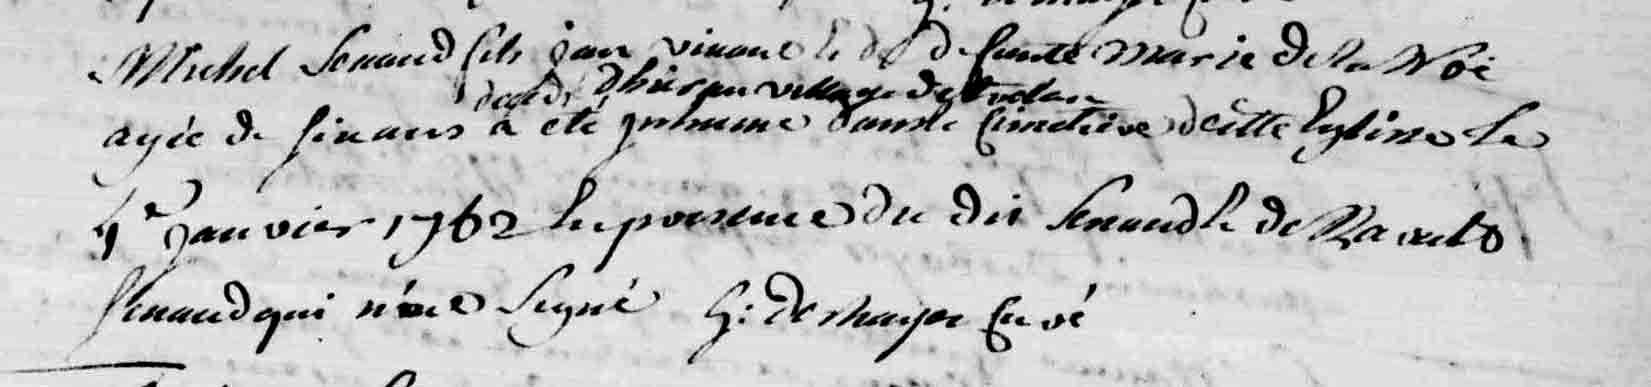 Michel Senaud fils jan vivane & de d funte Marie de la Noë
decedé dhier au village de
agée de six ans a eté jnhumé dans le Cimetiere de cette Eglise le
4e janvier 1762 En presence du dit Senaud & de Raouls
Senaud qui n'ont Signé G: Desmaison Curé